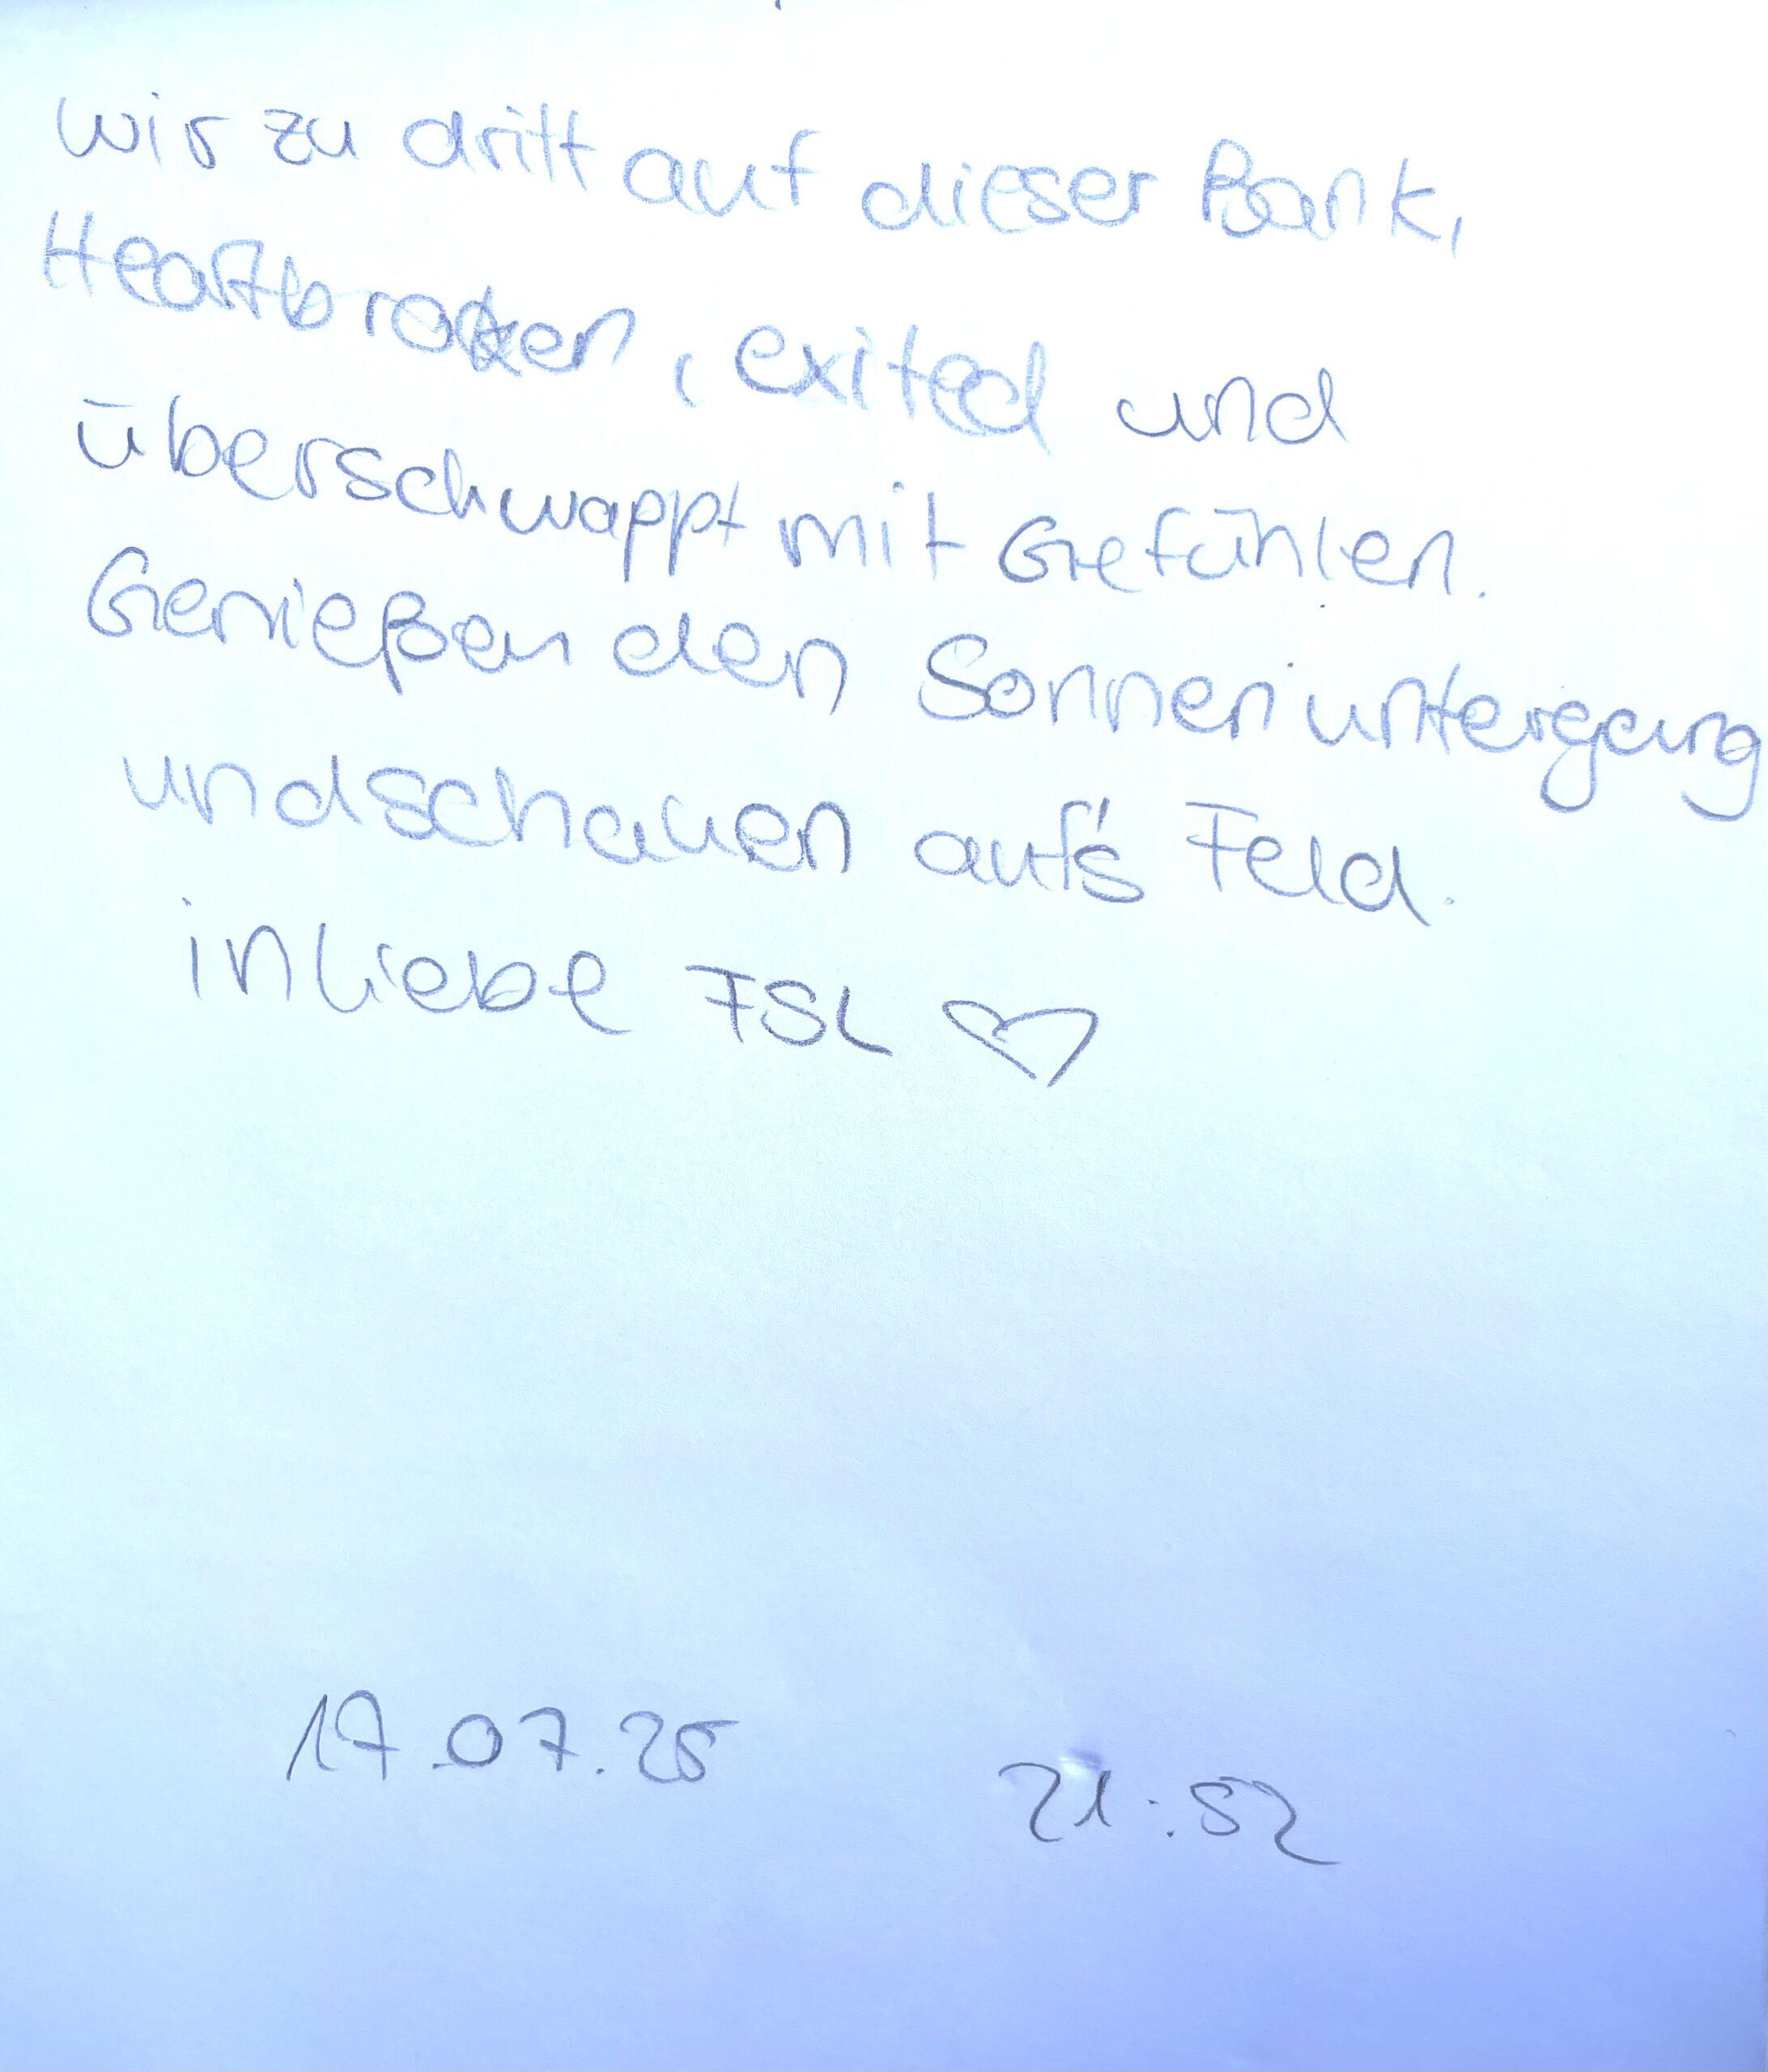 wir zu dritt auf dieser Bank,
Heartbroken, exited und
überschwappt mit Gefühlen.
Genießen den Sonnenuntergang
und schauen auf's Feld.
in liebe FSL ♡
17.07.25 21:52